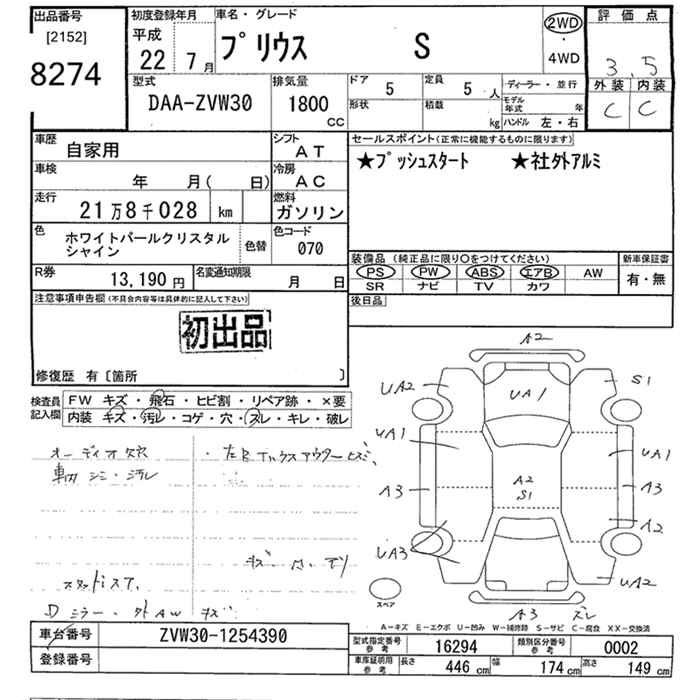 出品番号 初度登録年月 車名・グレード 2WD 評価点
[2152] 平成 プリウス S ・
8274 22 年 7 月 4WD 3.5
型式 排気量 ドア 5 定員 5 人 ディーラー・並行 外装 内装
DAA-ZVW30 1800 cc 形状 積載 kg モデル年式 年 C C
ハンドル 左・右
車歴 自家用 シフト AT セールスポイント(正常に機能するものに限ります)
車検 年 月( 日) 冷房 AC ★プッシュスタート ★社外アルミ
走行 21万8千028 km 燃料 ガソリン
色 ホワイトパールクリスタルシャイン 色替 色コード 070
装備品 (純正品に限り○をつけてください) 新車保証書
R券 13,190円 名変通知期限 月 日 PS PW ABS エアB AW 有・無
SR ナビ TV カワ
注意事項申告欄(不具合内容等は具体的に記入して下さい) 後日品
初出品
修復歴 有〔箇所 〕
検査員 FW キズ・飛石・ヒビ割・リペア跡・×要
記入欄 内装 キズ・汚レ・コゲ・穴・スレ・キレ・破レ
オーディオ欠
車内シミ・汚レ
スタッドレス
Dミラー・外AW キズ
A2
UA2 UA1 S1
UA1 UA1
A3 A2 S1 A3
A2
UA3 UA2
スペア A3 ズレ
A-キズ E-エクボ U-凹み W-補修跡 S-サビ C-腐食 XX-交換済
車台番号 ZVW30-1254390
登録番号
型式指定番号 参考 16294 類別区分番号 参考 0002
車庫証明用 参考 長さ 446 cm 幅 174 cm 高さ 149 cm